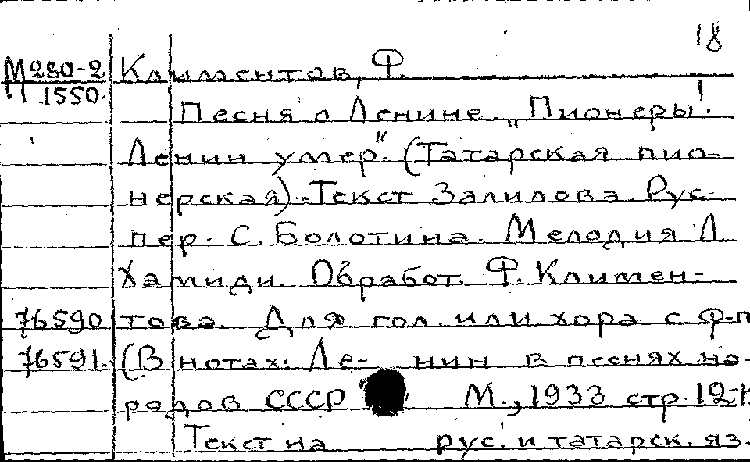 18
М280-2 Климентов, Ф.
1550.
Песня о Ленине. „Пионеры!
Ленин умер". (Татарская пио-
нерская). Текст Залилова. Рус.
пер. С. Болотина. Мелодия Л
Хамиди. Обработ. Ф. Климен-
76590 това. Для гол. или хора с ф-п
76591. (В нотах: Ле- нин в песнях на-
родов СССР М., 1933 стр. 12-
Текст на рус. и татарск. яз.